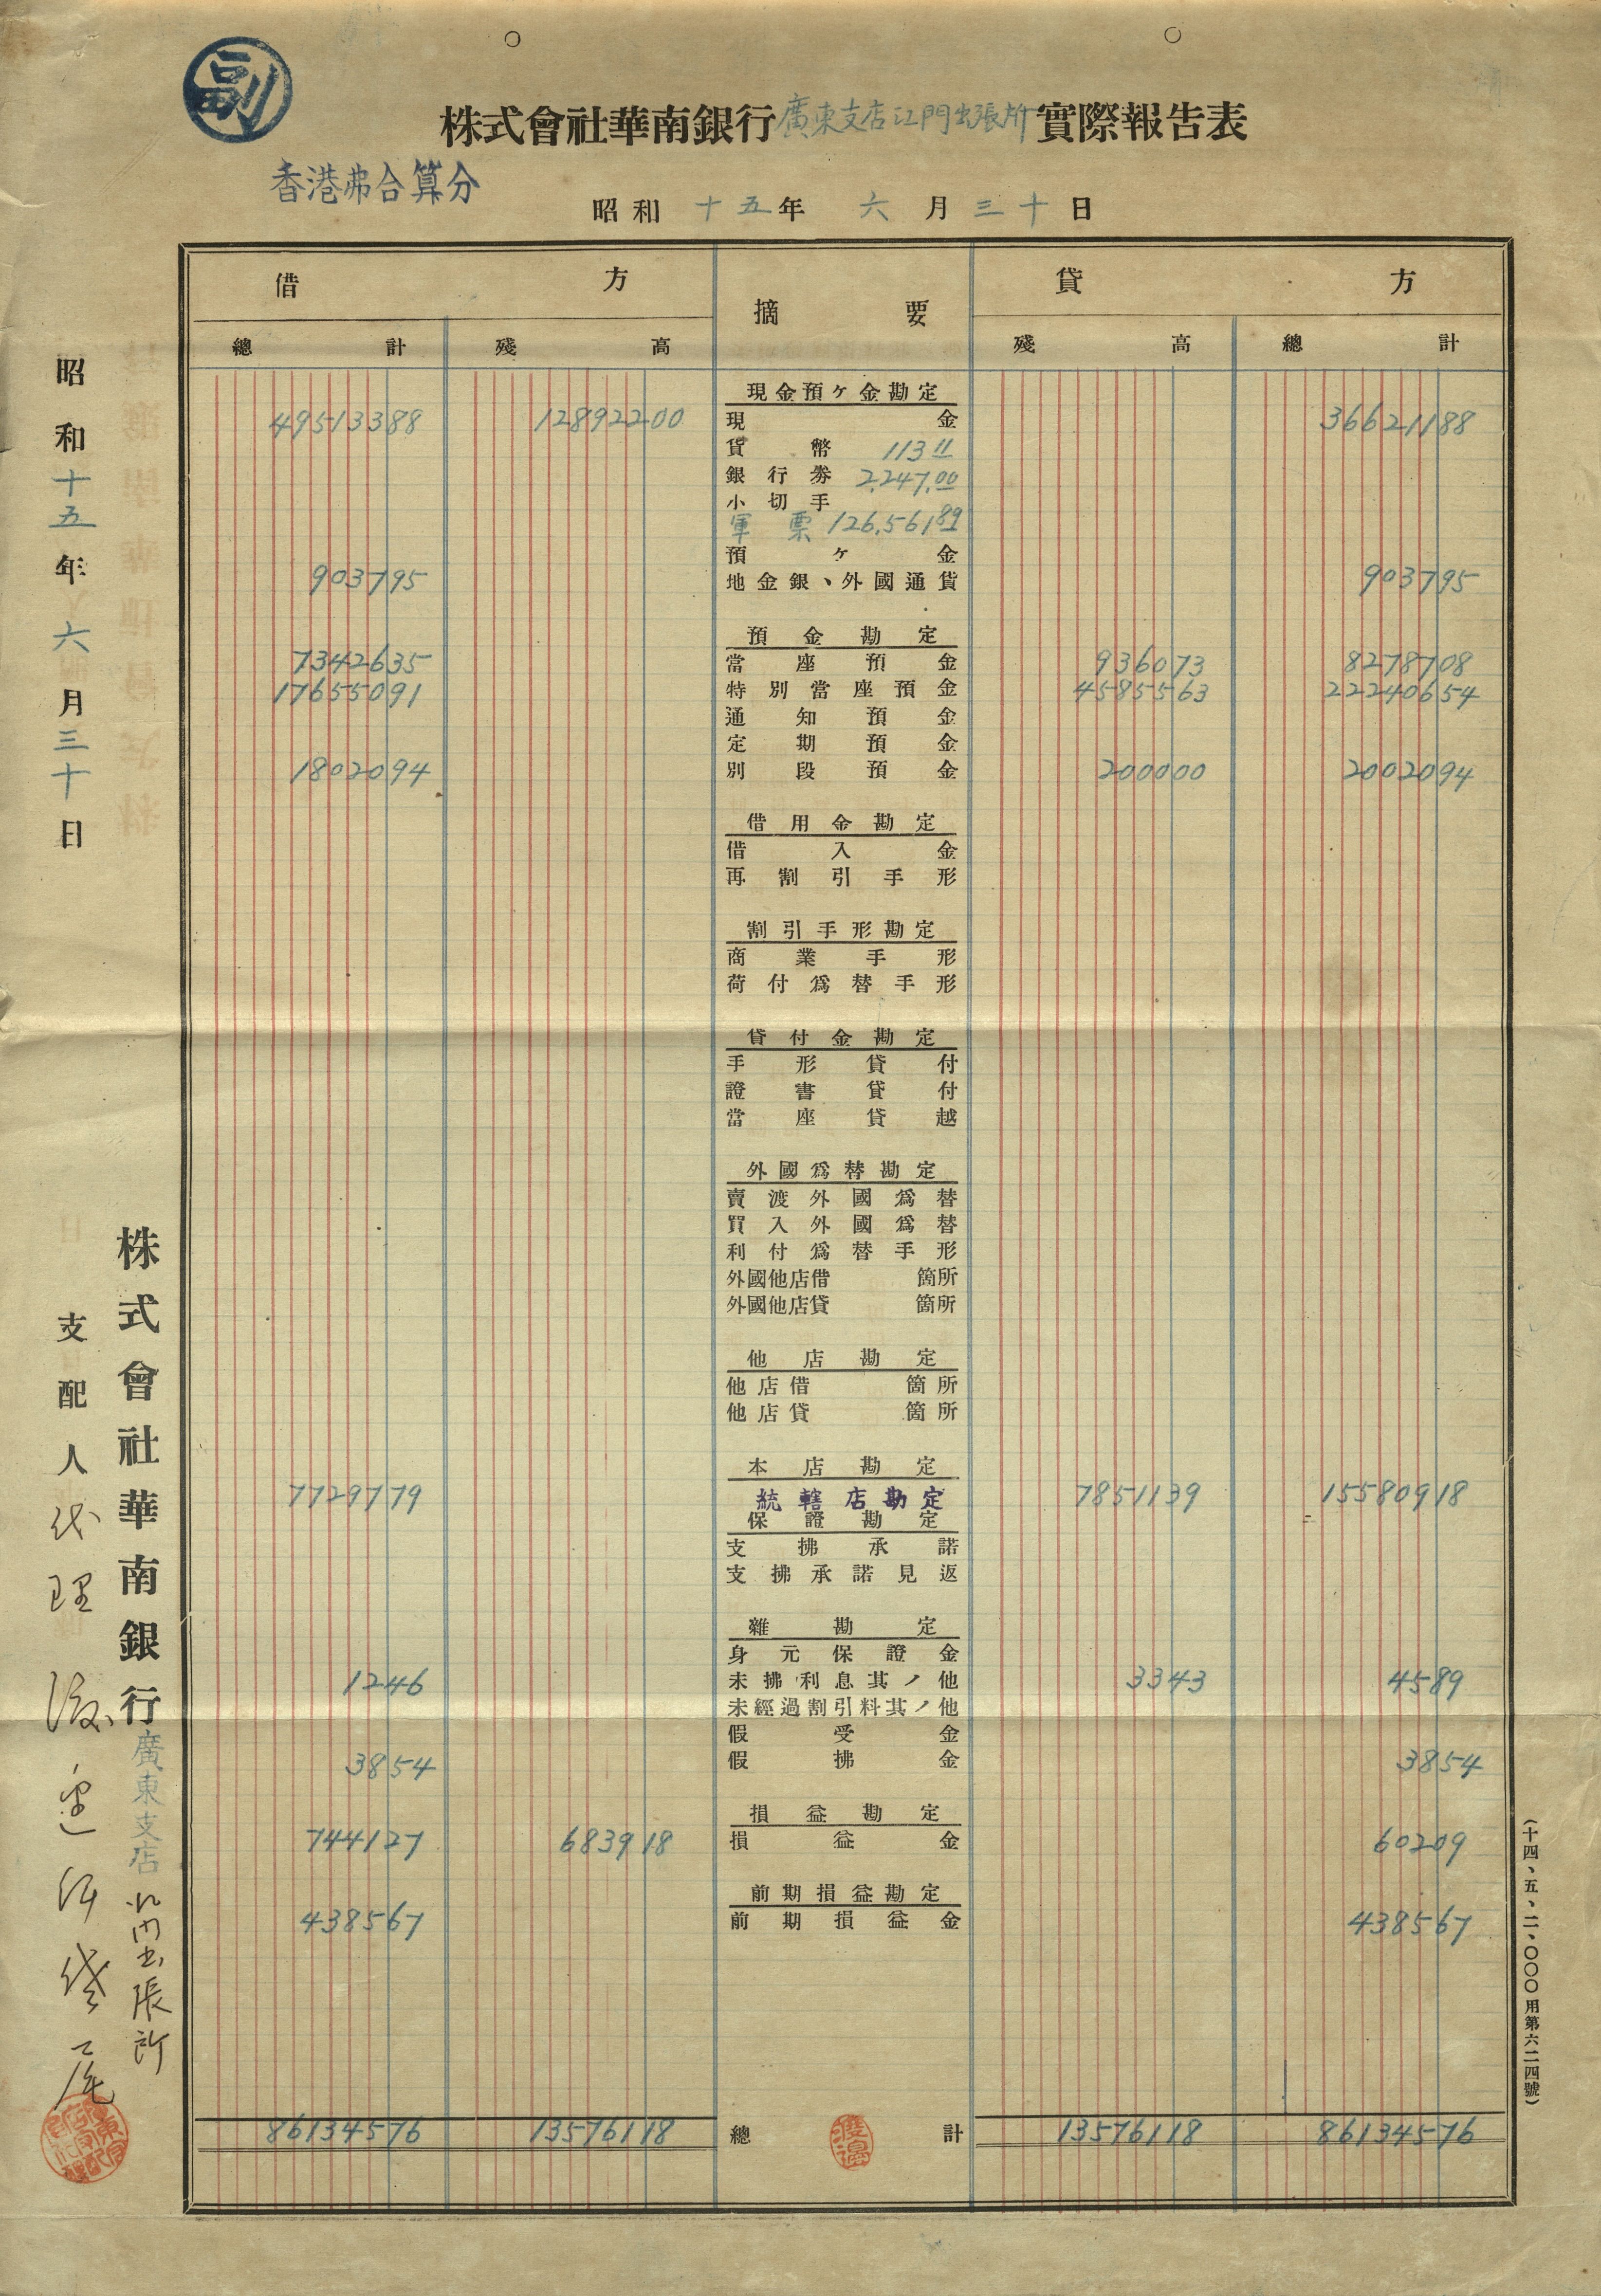 副
株式會社華南銀行廣東支店江門出張所實際報告表
香港弗合算分
昭和十五年六月三十日
借方 摘要 貸方
總計 殘高 殘高 總計
現金預ケ金勘定
49513388 12892200 現金 36621188
貨幣 113 11
銀行券 2,247.00
小切手
軍票 126,561 89
預ケ金
903795 地金銀、外國通貨 903795
預金勘定
7342635 當座預金 936073 8278708
17655091 特別當座預金 4585563 22240654
通知預金
定期預金
1802094 別段預金 200000 2002094
借用金勘定
借入金
再割引手形
割引手形勘定
商業手形
荷付爲替手形
貸付金勘定
手形貸付
證書貸付
當座貸越
外國爲替勘定
賣渡外國爲替
買入外國爲替
利付爲替手形
外國他店借 箇所
外國他店貸 箇所
他店勘定
他店借 箇所
他店貸 箇所
本店勘定
7729779 統轄店勘定 7851139 15580918
保證勘定
支拂承諾
支拂承諾見返
雜勘定
身元保證金
1246 未拂利息其ノ他 3343 4589
未經過割引料其ノ他
假受金
3854 假拂金 3854
損益勘定
744127 683918 損益金 60209
前期損益勘定
438567 前期損益金 438567
86134576 13576118 總計 13576118 86134576
渡邊
昭和十五年六月三十日
株式會社華南銀行廣東支店江門出張所
支配人代理
(十四、五、二、〇〇〇用第六二四號)